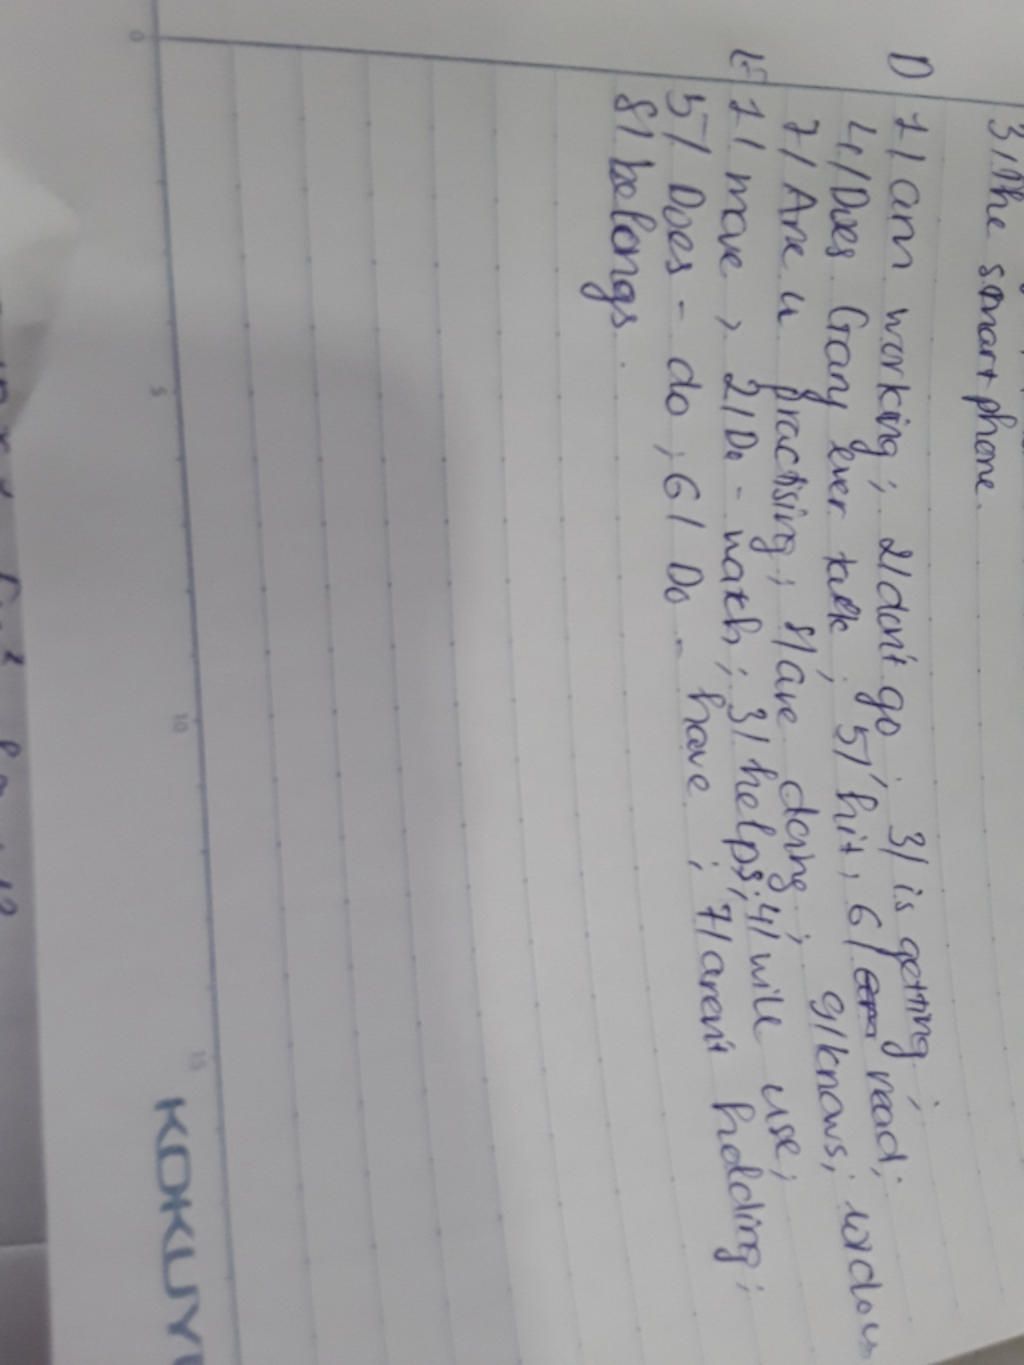 3/ The smartphone.
D 1/ am working; 2/ don't go; 3/ is getting;
4/ Does Gary ever talk; 5/ hit, 6/ read;
7/ Are u practising; 8/ are doing; 9/ knows;
E 1/ move, 2/ Do - watch; 3/ helps; 4/ will use;
5/ Does - do; 6/ Do - have; 7/ aren't holding;
8/ belongs.
0 5 10 15
KOKUY